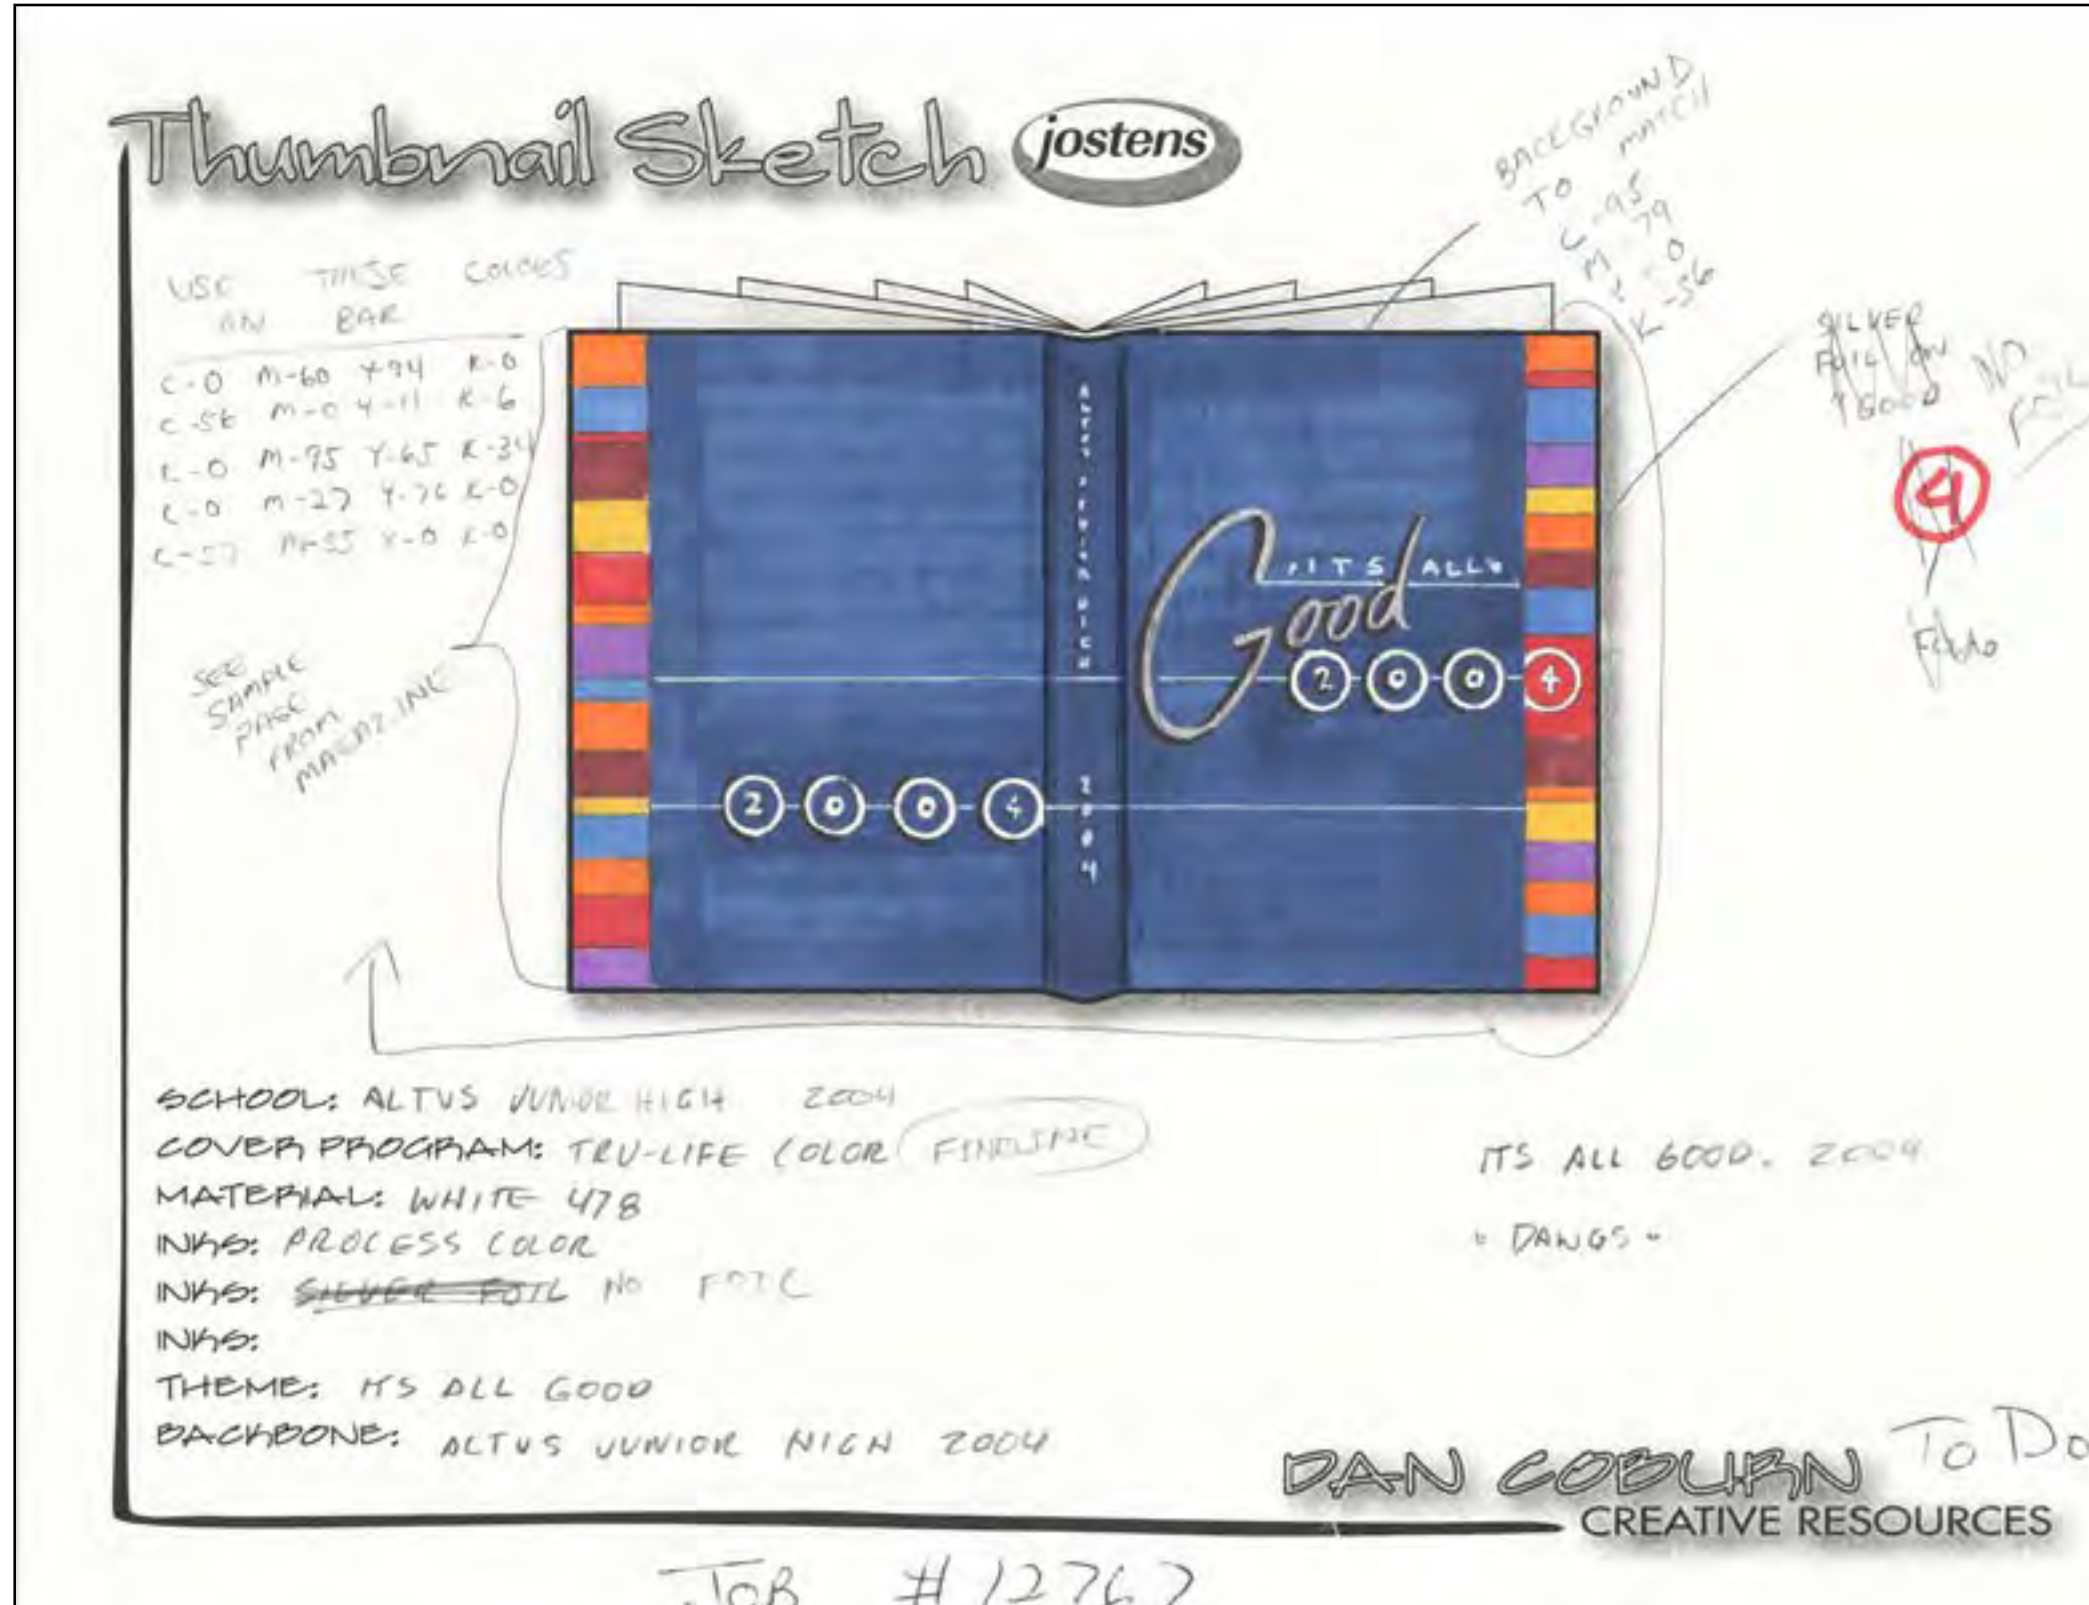 Thumbnail Sketch jostens
BACKGROUND
TO MATCH
C-95
M-79
Y-0
K-56
USE THESE COLORS
ON BAR
C-0 M-60 Y-94 K-0
C-56 M-0 Y-11 K-6
C-0 M-95 Y-65 K-34
C-0 M-27 Y-76 K-0
C-57 M-55 Y-0 K-0
SEE
SAMPLE
PAGE
FROM
MAGAZINE
SILVER
FOIL ON
GOOD
NO
FOIL
4
ALTUS JUNIOR HIGH
2004
ITS ALL
Good
2 0 0 4
2 0 0 4
SCHOOL: ALTUS JUNIOR HIGH 2004
COVER PROGRAM: TRU-LIFE COLOR FINELINE
MATERIAL: WHITE 478
INKS: PROCESS COLOR
INKS: SILVER FOIL NO FOIL
INKS:
THEME: ITS ALL GOOD
BACKBONE: ALTUS JUNIOR HIGH 2004
ITS ALL GOOD. 2004
DAWGS
DAN COBURN
CREATIVE RESOURCES
To Do
JOB #12767